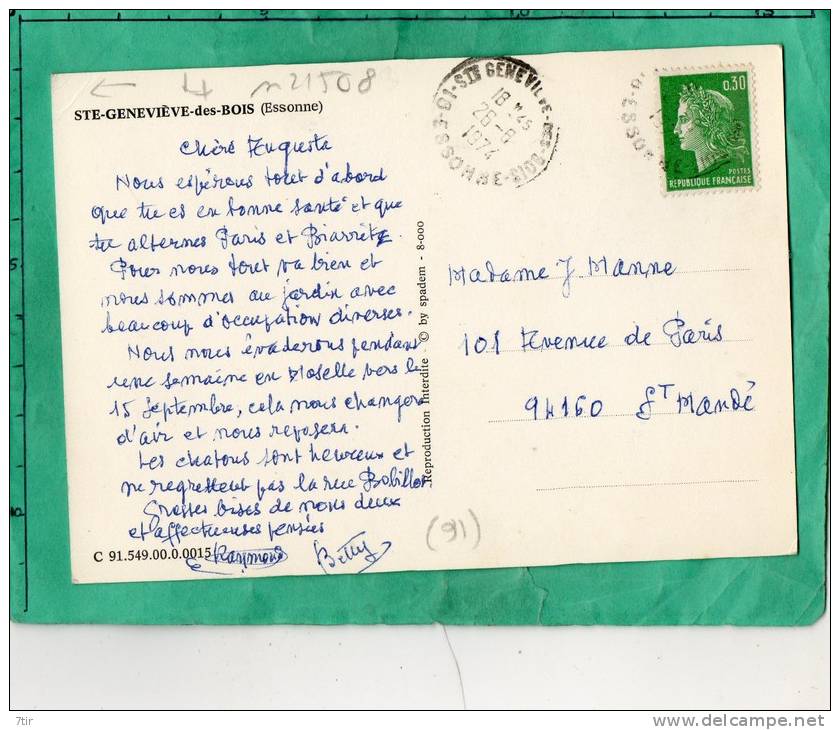 ← 4 n°21508
STE-GENEVIÈVE-des-BOIS (Essonne)
Chère Augusta
Nous espérons tout d'abord
que tu es en bonne santé et que
tu alternes Paris et Biarritz.
Pour nous tout va bien et
nous sommes au jardin avec
beaucoup d'occupation diverses.
Nous nous évaderons pendant
une semaine en Moselle vers le
15 Septembre, cela nous changera
d'air et nous reposera.
Les chatons sont heureux et
ne regrettent pas la rue Bobillot
Grosses bises de nous deux
et affectueuses pensées
Raymond Betty
C 91.549.00.0.0015
Reproduction Interdite - © by spadem - 8-000
91-STE GENEVIEVE-DES-BOIS-ESSONNE
18 H 45
26-8
1974
0,30
POSTES
REPUBLIQUE FRANÇAISE
Madame J Manne
101 Avenue de Paris
94160 St Mandé
(91)
5
10
7tir
www.delcampe.net